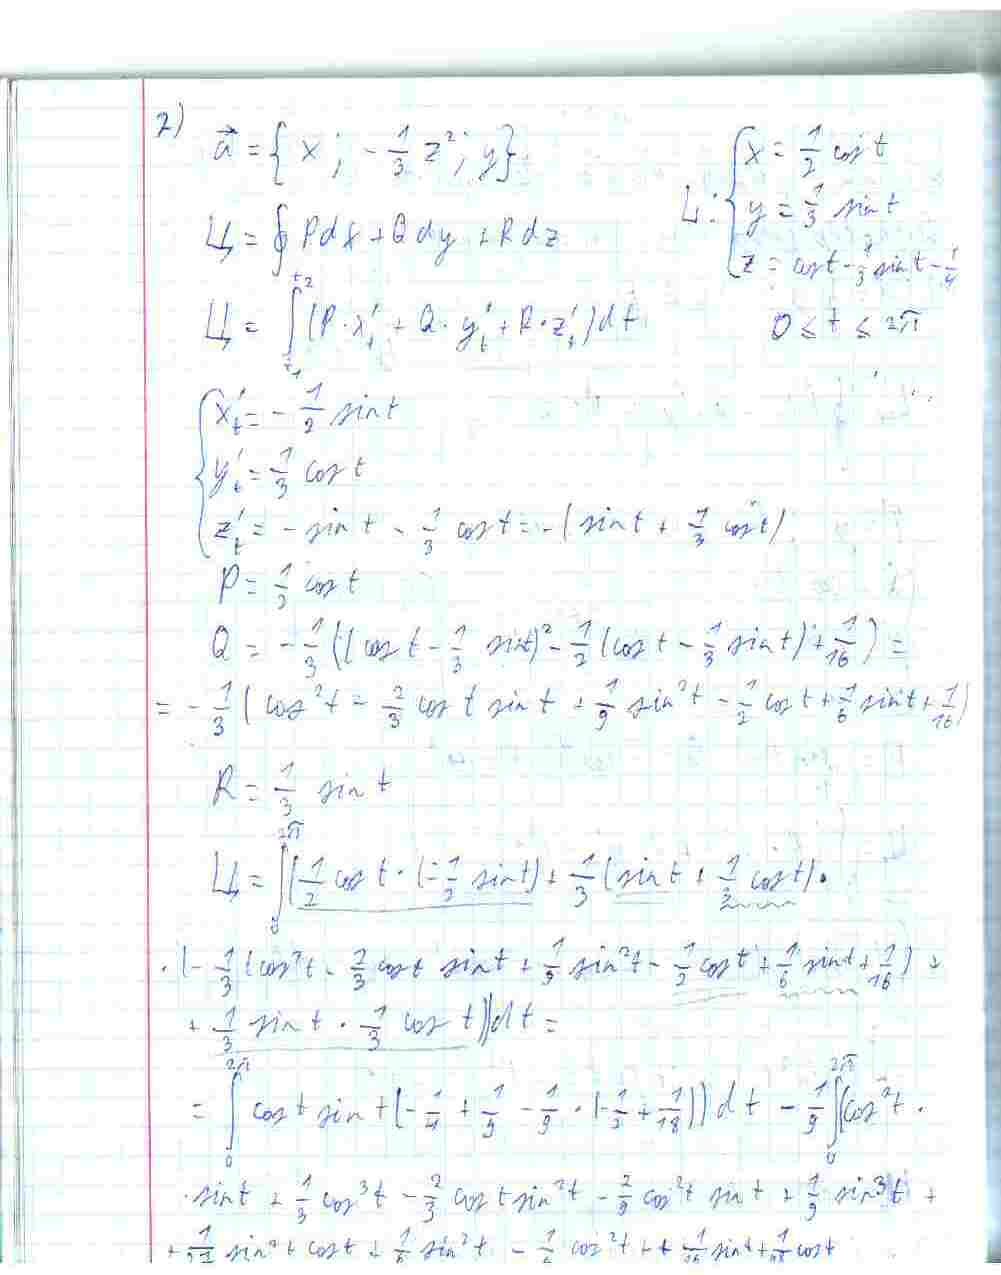 2)
a⃗ = { x ; - 1/3 z² ; y }
L: { x = 1/2 cos t
y = 1/3 sin t
z = cos t - 1/3 sin t - 1/4
0 ≤ t ≤ 2π
Ц = ∮ Pdx + Qdy + Rdz
Ц = ∫_{t₁}^{t₂} (P · x'_t + Q · y'_t + R · z'_t) dt
{ x'_t = - 1/2 sin t
y'_t = 1/3 cos t
z'_t = - sin t - 1/3 cos t = - (sin t + 1/3 cos t)
P = 1/2 cos t
Q = - 1/3 ((cos t - 1/3 sin t)² - 1/2 (cos t - 1/3 sin t) + 1/16) =
= - 1/3 (cos² t - 2/3 cos t sin t + 1/9 sin² t - 1/2 cos t + 1/6 sin t + 1/16)
R = 1/3 sin t
Ц = ∫_0^{2π} (1/2 cos t · (- 1/2 sin t) + 1/3 (sin t + 1/3 cos t) ·
· (- 1/3 (cos² t - 2/3 cos t sin t + 1/9 sin² t - 1/2 cos t + 1/6 sin t + 1/16) +
+ 1/3 sin t · 1/3 cos t)) dt =
= ∫_0^{2π} cos t sin t (- 1/4 + 1/9 - 1/9 · (- 1/2 + 1/18)) dt - 1/9 ∫_0^{2π} (cos² t ·
· sin t + 1/3 cos³ t - 2/3 cos t sin² t - 2/9 cos² t sin t + 1/9 sin³ t +
sin² t cos t + 1/6 sin² t - 1/6 cos² t + sin t + cos t